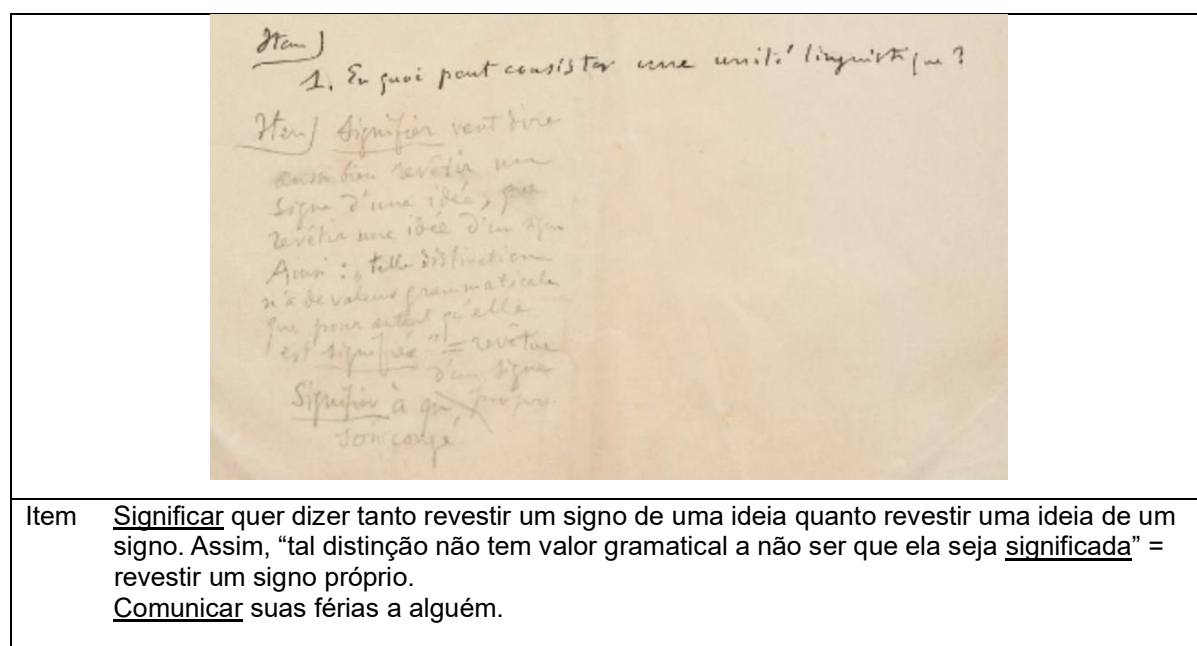 Item)
1. En quoi peut consister une unité linguistique ?
Item) Signifier veut dire
aussi bien revêtir un
signe d'une idée, que
revêtir une idée d'un signe
Ainsi : „telle distinction
n'a de valeur grammaticale
que pour autant qu'elle
est signifiée" = revêtue
d'un signe
propre
Signifier à qn
son congé.
Item Significar quer dizer tanto revestir um signo de uma ideia quanto revestir uma ideia de um
signo. Assim, “tal distinção não tem valor gramatical a não ser que ela seja significada” =
revestir um signo próprio.
Comunicar suas férias a alguém.